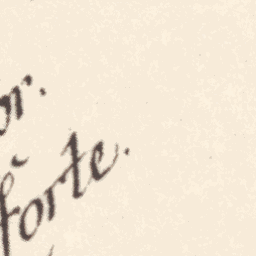 or.
forte.